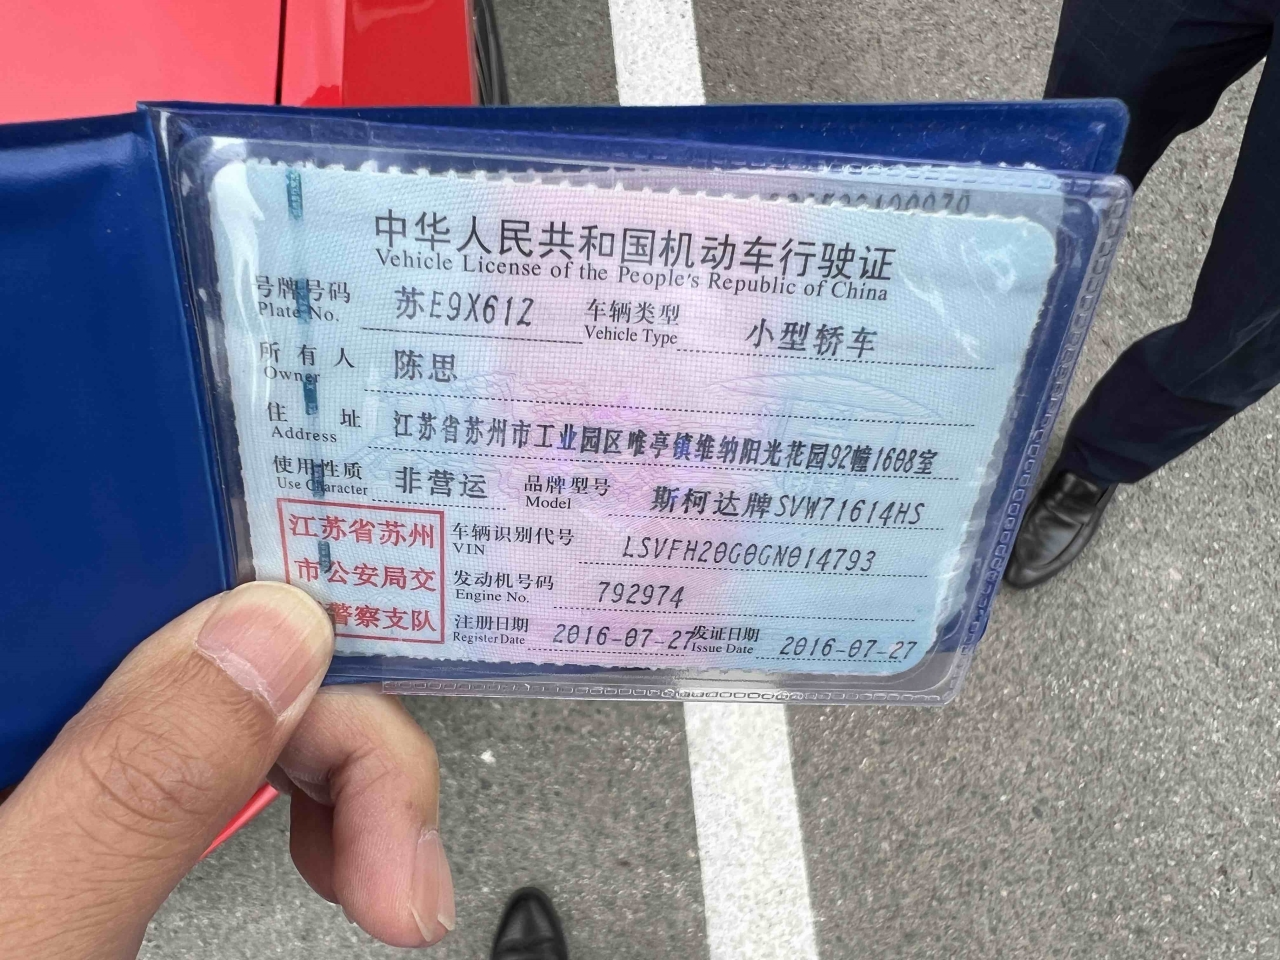 中华人民共和国机动车行驶证
Vehicle License of the People's Republic of China
号牌号码 苏E9X61Z 车辆类型 小型轿车
Plate No. Vehicle Type
所有人 陈思
Owner
住址 江苏省苏州市工业园区唯亭镇维纳阳光花园92幢1608室
Address
使用性质 非营运 品牌型号 斯柯达牌SVW71614HS
Use Character Model
江苏省苏州
市公安局交
警察支队
车辆识别代号 LSVFH20G0GN014793
VIN
发动机号码 792974
Engine No.
注册日期 2016-07-27 发证日期 2016-07-27
Register Date Issue Date